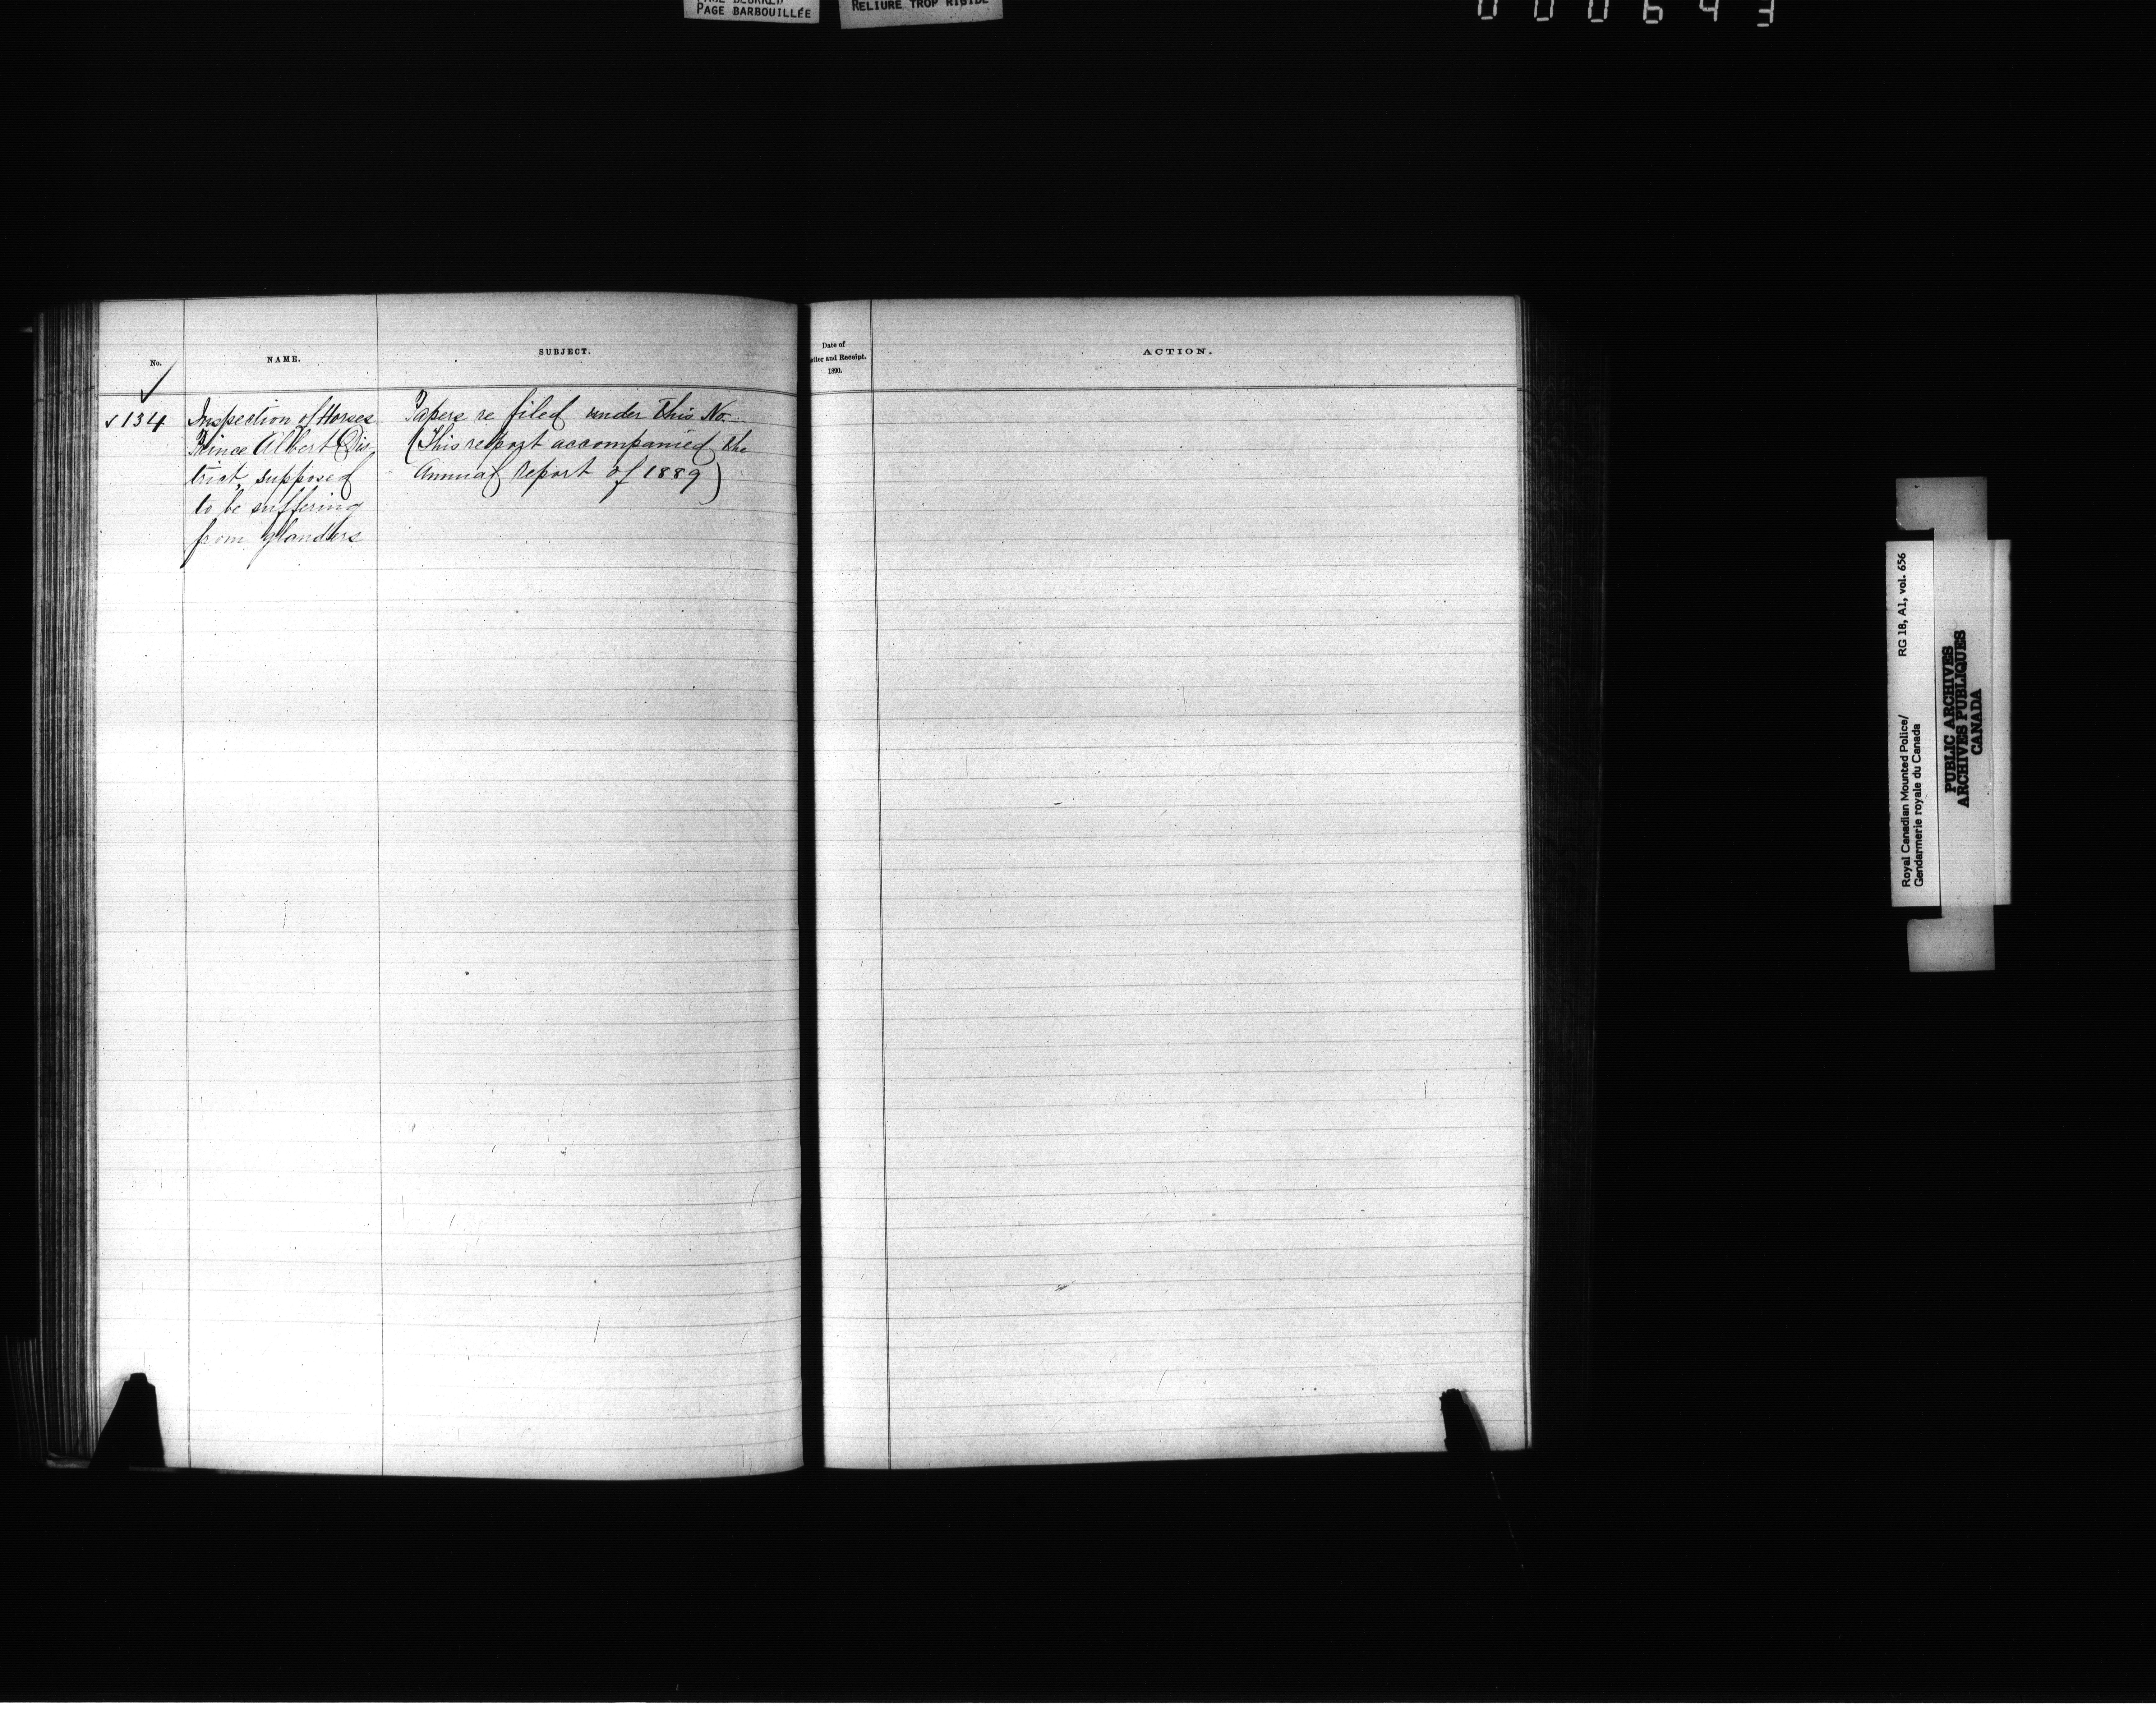 PAGE BARBOUILLÉE
RELIURE TROP RIGIDE
000643
No.
NAME.
SUBJECT.
Date of
etter and Receipt.
1890.
ACTION.
✓ 134
Inspection of Horses
Prince Albert Dis
trict, supposed
to be suffering
from glanders
Papers re filed under this No.
(This report accompanied the
Annual Report of 1889)
Royal Canadian Mounted Police/
Gendarmerie royale du Canada
RG 18, A1, vol. 656
PUBLIC ARCHIVES
ARCHIVES PUBLIQUES
CANADA